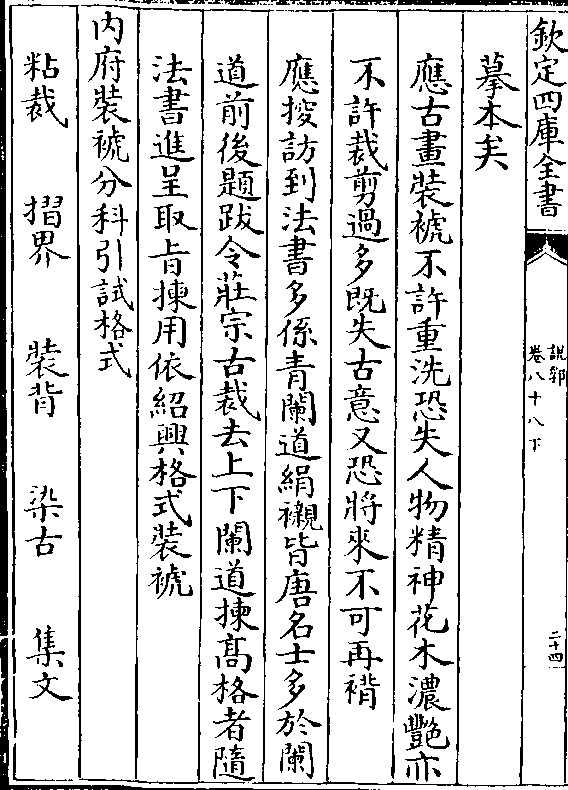 欽定四庫全書
說郛
卷八十八下
二十四
摹本矣
應古畫裝褫不許重洗恐失人物精神花木濃豔亦
不許裁剪過多既失古意又恐將來不可再褙
應搜訪到法書多係青闌道絹襯皆唐名士多於闌
道前後題跋令莊宗古裁去上下闌道揀髙格者隨
法書進呈取㫖揀用依紹興格式裝褫
内府裝褫分科引試格式
粘裁 摺界 裝背 染古 集文